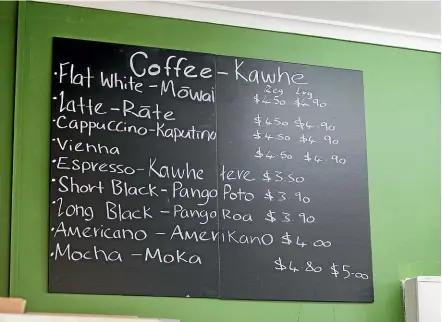 Coffee - Kawhe
Reg Lrg
·Flat White - Mōwai $4.50 $4.90
·Latte - Rāte $4.50 $4.90
·Cappuccino - Kaputino $4.50 $4.90
·Vienna $4.50 $4.90
·Espresso - Kawhe tere $3.50
·Short Black - Pango Poto $3.90
·Long Black - Pango Roa $3.90
·Americano - Amerikano $4.00
·Mocha - Moka $4.80 $5.00